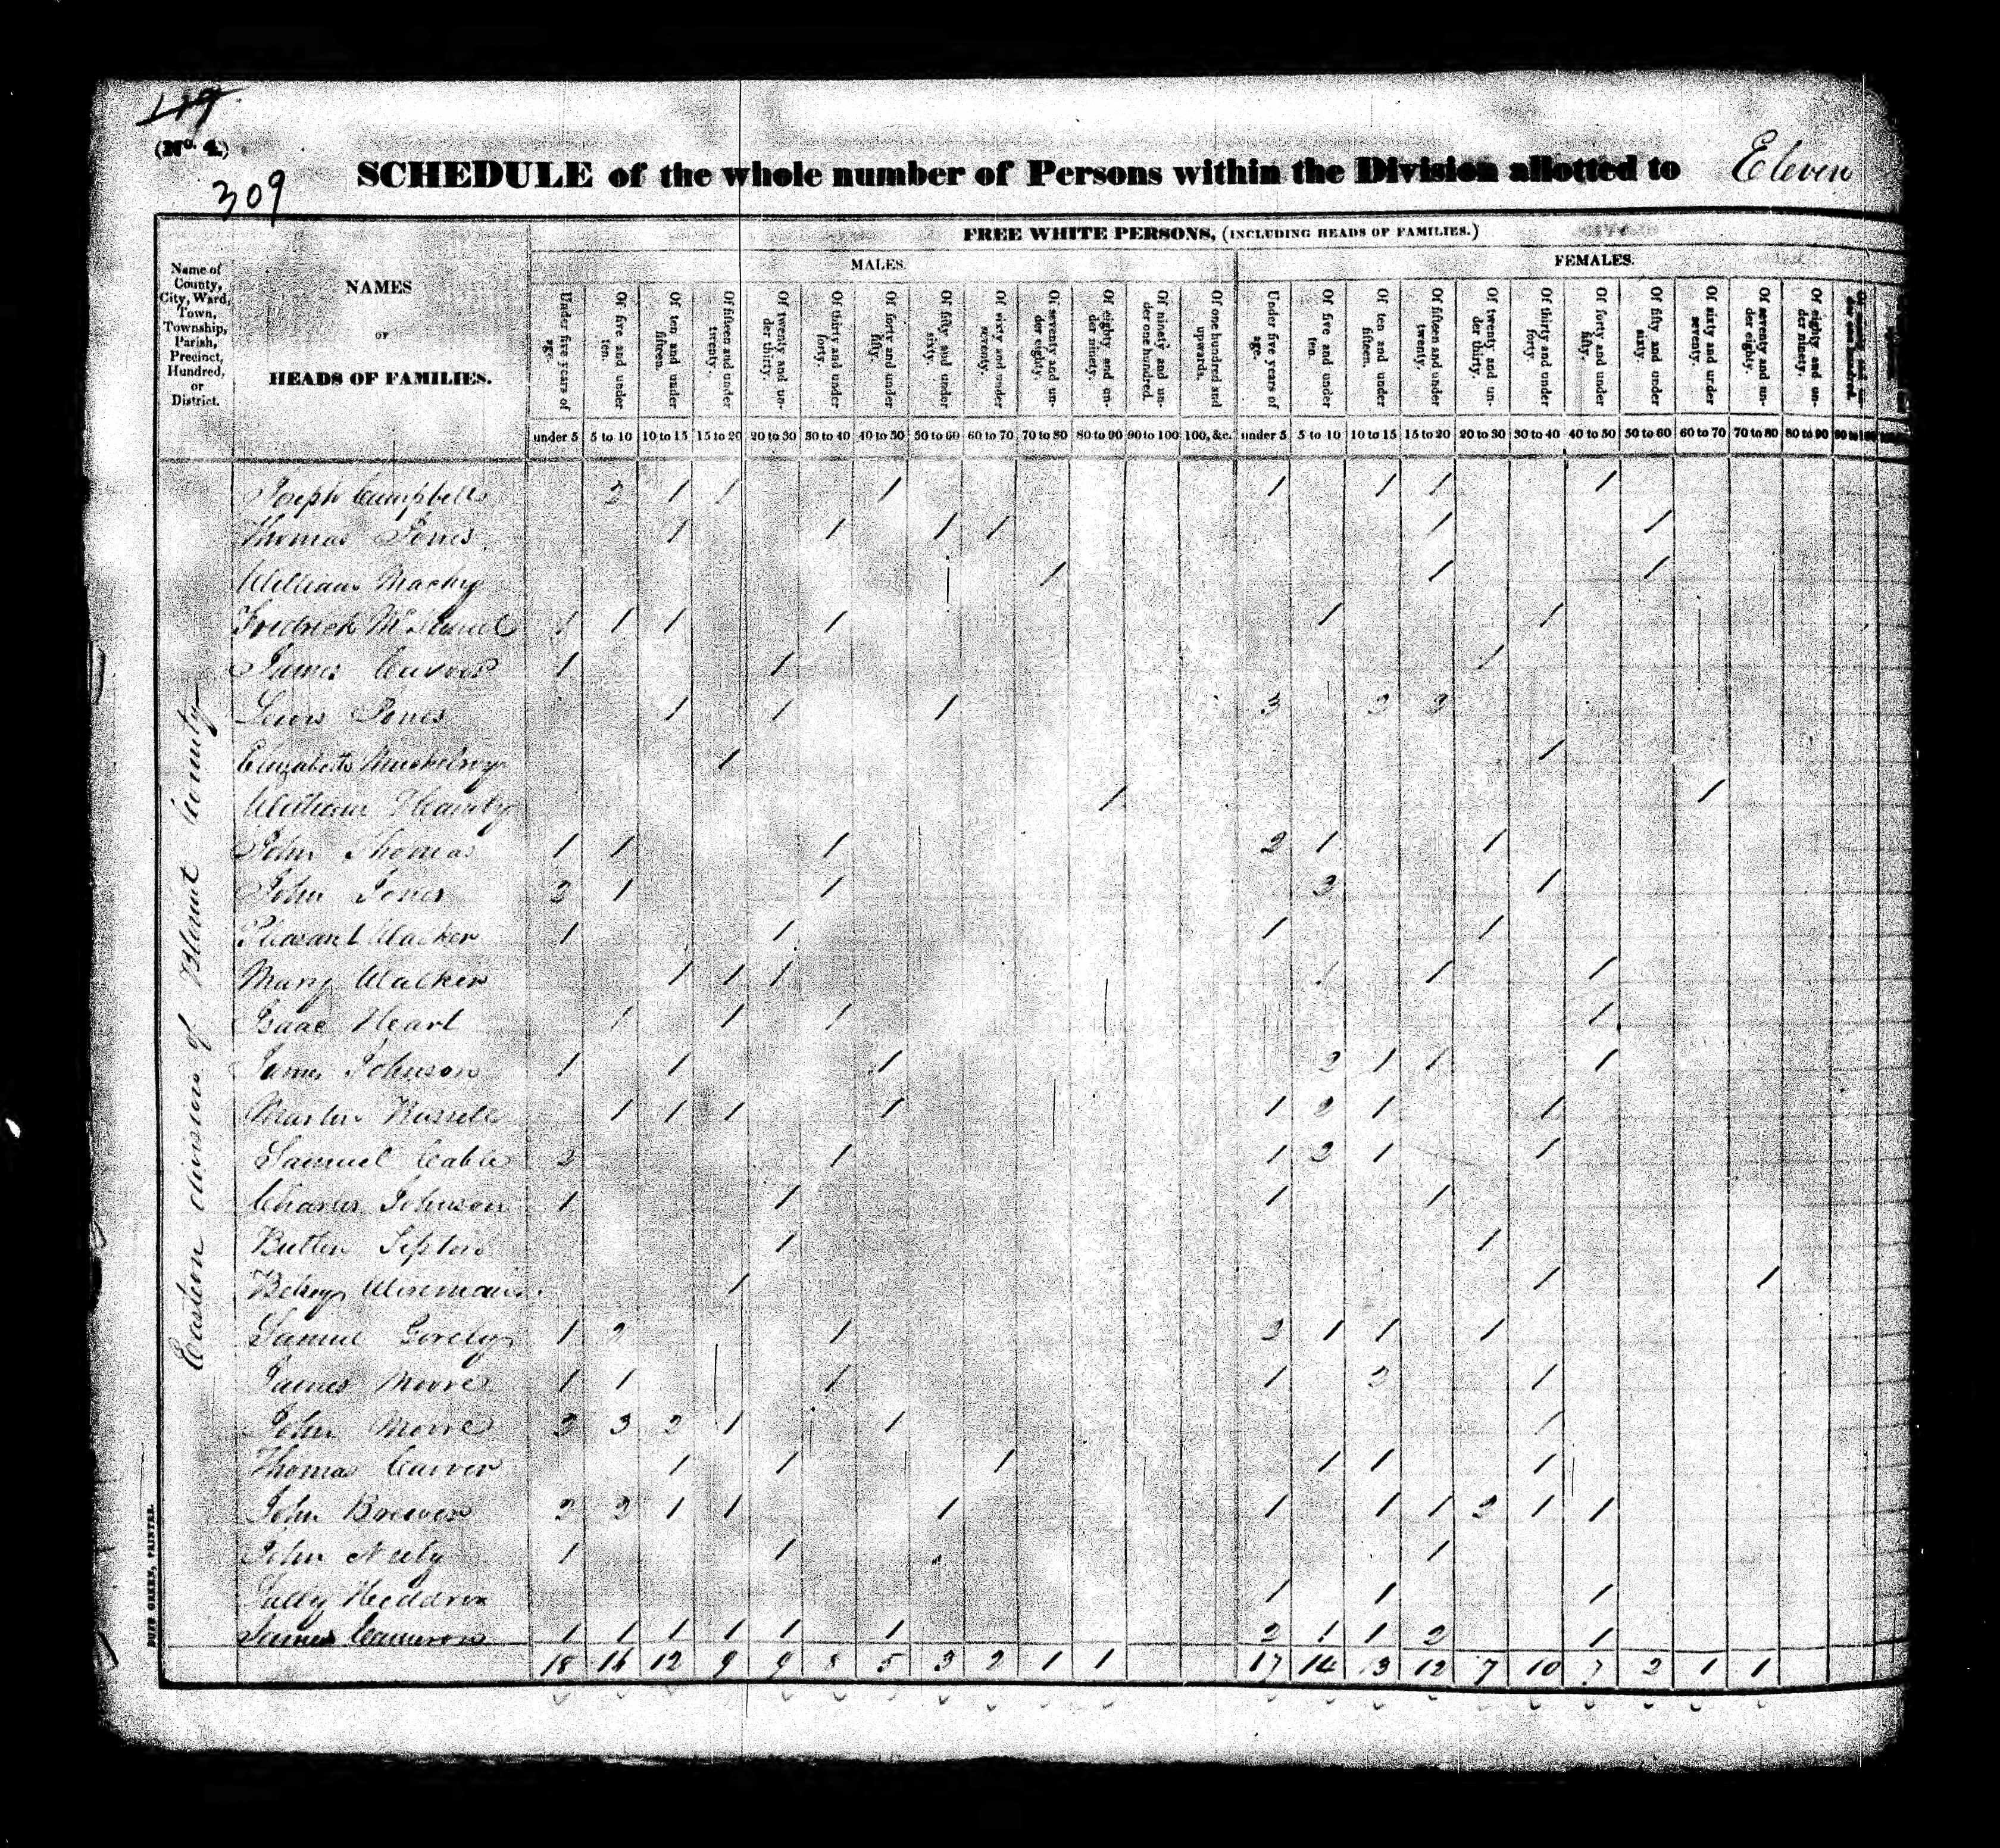 119
(No. 4.)
309
SCHEDULE of the whole number of Persons within the Division allotted to Eleven
FREE WHITE PERSONS, (INCLUDING HEADS OF FAMILIES.)
MALES. FEMALES.
Name of County, City, Ward, Town, Township, Parish, Precinct, Hundred, or District.
NAMES
OF
HEADS OF FAMILIES.
Under five years of age. Of five and under ten. Of ten and under fifteen. Of fifteen and under twenty. Of twenty and under thirty. Of thirty and under forty. Of forty and under fifty. Of fifty and under sixty. Of sixty and under seventy. Of seventy and under eighty. Of eighty and under ninety. Of ninety and under one hundred. Of one hundred and upwards. Under five years of age. Of five and under ten. Of ten and under fifteen. Of fifteen and under twenty. Of twenty and under thirty. Of thirty and under forty. Of forty and under fifty. Of fifty and under sixty. Of sixty and under seventy. Of seventy and under eighty. Of eighty and under ninety.
under 5 5 to 10 10 to 15 15 to 20 20 to 30 30 to 40 40 to 50 50 to 60 60 to 70 70 to 80 80 to 90 90 to 100 100, &c. under 5 5 to 10 10 to 15 15 to 20 20 to 30 30 to 40 40 to 50 50 to 60 60 to 70 70 to 80 80 to 90
Eastern division of Blount County
Joseph Campbell 2 1 1 1 1 1 1 1
Thomas Jones 1 1 1 1 1 1
William Mackey 1 1 1
Fredrick 1 1 1 1 1 1
James 1 1 1
Lewis Jones 1 1 1 3 2 2
Elizabeth 1 1
William Handly 1 1
John Thomas 1 1 1 2 1 1
John Jones 2 1 1 2 1
Pleasant Walker 1 1 1 1
Mary Walker 1 1 1 1 1 1
Isaac Heart 1 1 1 1
James Johnson 1 1 1 2 1 1 1
Martin Russell 1 1 1 1 1 2 1 1
Samuel Cable 2 1 1 2 1 1
Charles Johnson 1 1 1 1
Butler Tipton 1 1
Betsey Wireman 1 1 1
Samuel Gorely 1 2 1 2 1 1 1
James Moore 1 1 1 1 2 1
John Moore 2 3 2 1 1 1
Thomas Carver 1 1 1 1 1 1
John Brewer 2 2 1 1 1 1 1 1 2 1 1
John Neely 1 1 1
Sally Heddrix 1 1 1
James Cameron 1 1 1 1 1 1 2 1 1 2 1
18 16 12 9 9 8 5 3 2 1 1 17 14 13 12 7 10 7 2 1 1
DUFF GREEN, PRINTER.